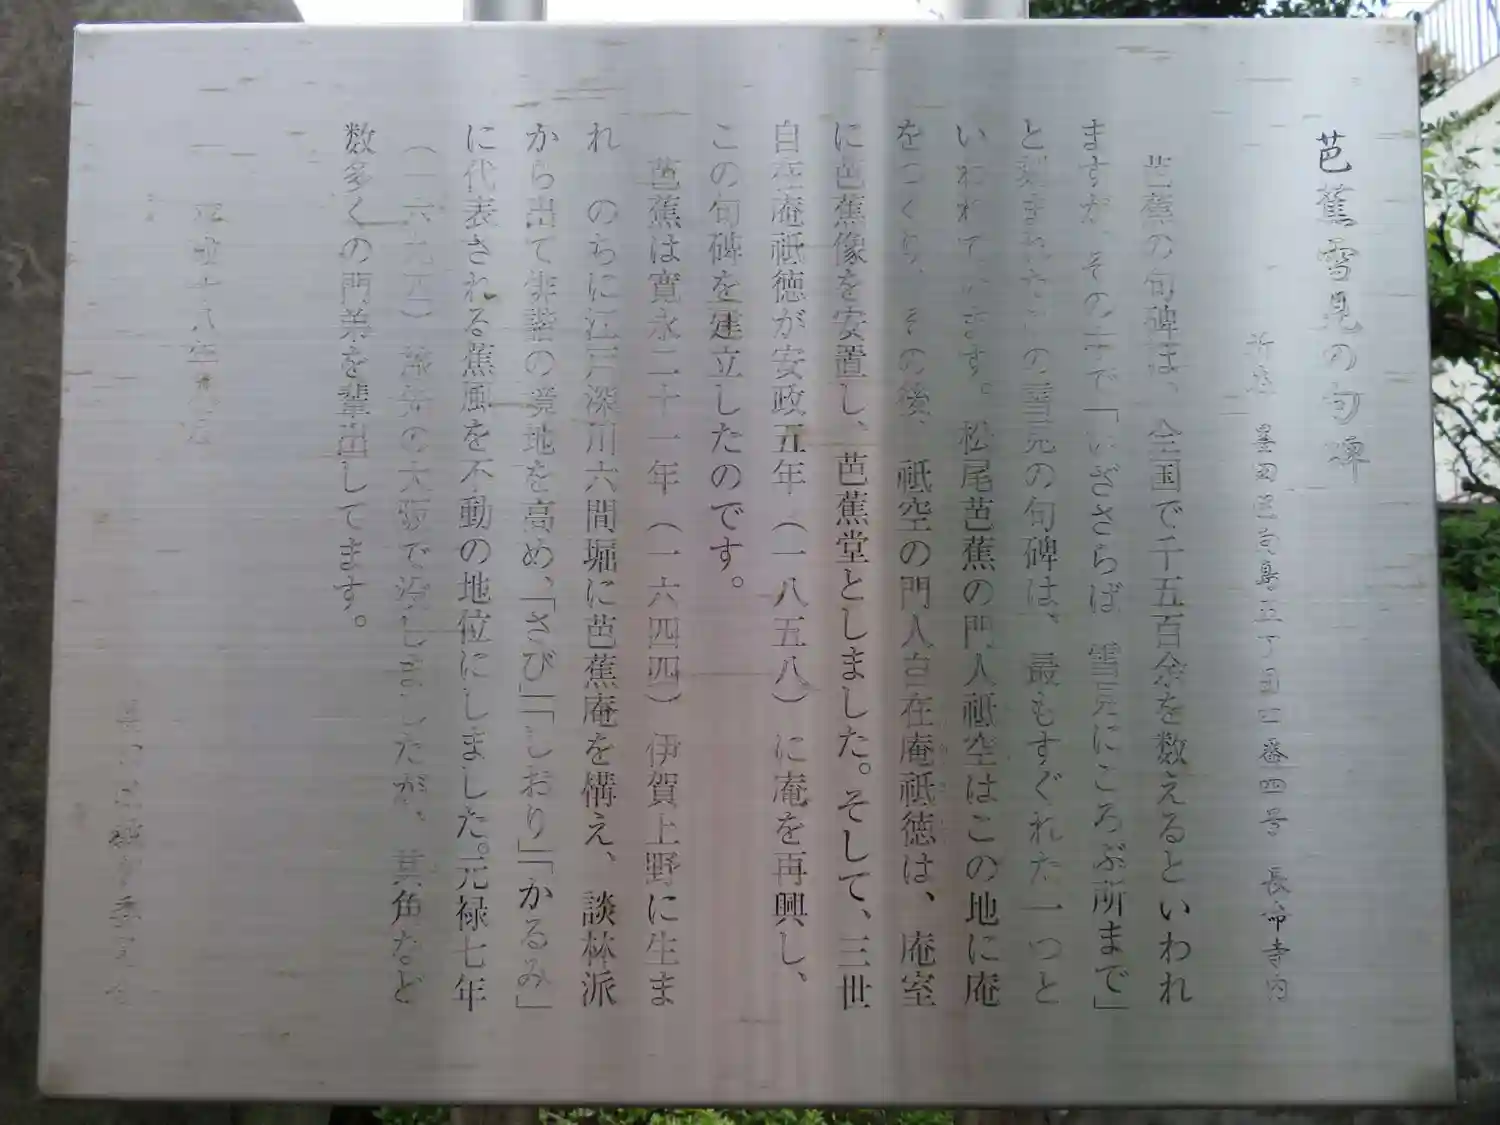 芭蕉雪見の句碑
所在 墨田区向島五丁目四番四号 長命寺内
芭蕉の句碑は、全国で千五百余を数えるといわれ
ますが、その中で「いざさらば 雪見にころぶ所まで」
と刻まれたこの雪見の句碑は、最もすぐれた一つと
いわれています。松尾芭蕉の門人祗空はこの地に庵
をつくり、その後、祗空の門人自在庵祗徳は、庵室
に芭蕉像を安置し、芭蕉堂としました。そして、三世
自在庵祗徳が安政五年（一八五八）に庵を再興し、
この句碑を建立したのです。
芭蕉は寛永二十一年（一六四四）伊賀上野に生ま
れ のちに江戸深川六間堀に芭蕉庵を構え、談林派
から出て俳諧の境地を高め、「さび」「しおり」「かるみ」
に代表される蕉風を不動の地位にしました。元禄七年
（一六九四）旅先の大阪で没しましたが、其角など
数多くの門弟を輩出してます。
墨田区教育委員会